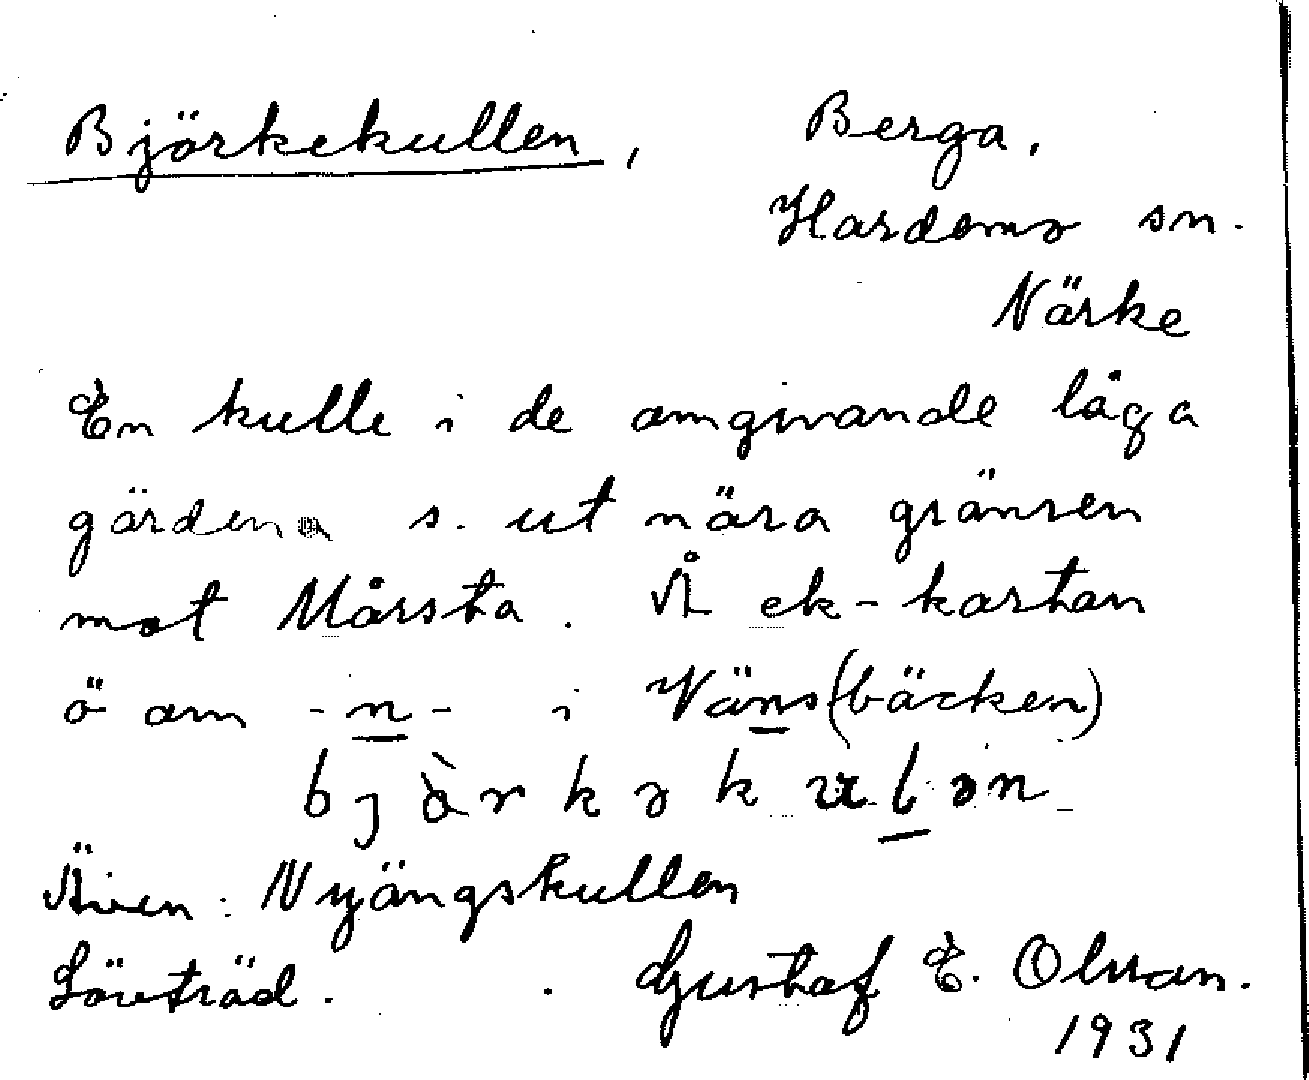 Björkekullen, Berga,
Hardemo sn.
Närke
En kulle i de omgivande låga
gärdena s. ut nära gränsen
mot Mårsta. Å ek-kartan
ö om -n- i Väns(bäcken)
bjòrkəkulən
Även: Nyängskullen
Lövträd. Gustaf E. Olsson.
1931